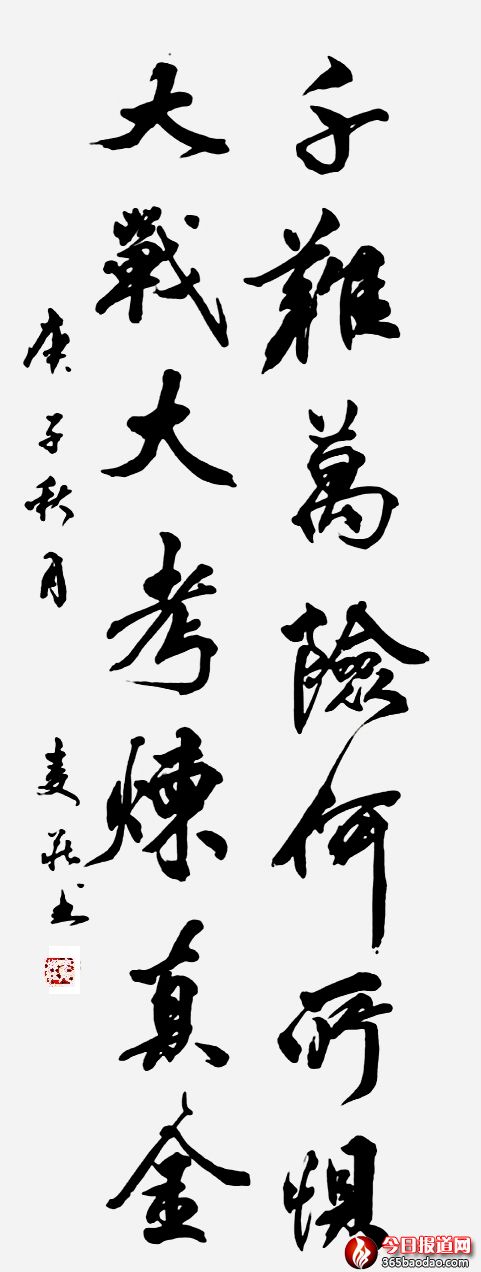 千難萬險何所惧
大戰大考煉真金
庚子秋月
麦莊书
今日报道网
365baodao.com